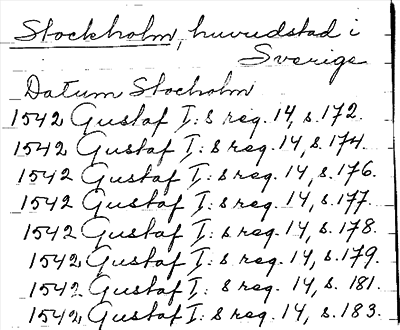 Stockholm, huvudstad i
Sverige
Datum Stocholm
1542 Gustaf I:s reg. 14, s. 172.
1542 Gustaf I:s reg. 14, s. 174.
1542 Gustaf I:s reg. 14, s. 176.
1542 Gustaf I:s reg. 14, s. 177.
1542 Gustaf I:s reg. 14, s. 178.
1542 Gustaf I:s reg. 14, s. 179.
1542 Gustaf I:s reg. 14, s. 181.
1542 Gustaf I:s reg. 14, s. 183.